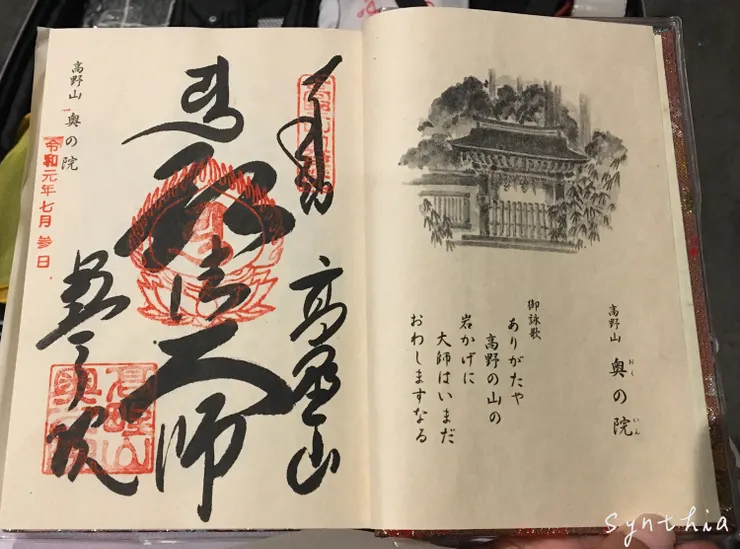 高野山 奥の院
おく いん
御詠歌
ありがたや
高野の山の
岩かげに
大師はいまだ
おわしますなる
高野山
弘法大師
奥之院
高野山 奥の院
令和元年七月参日
Synthia